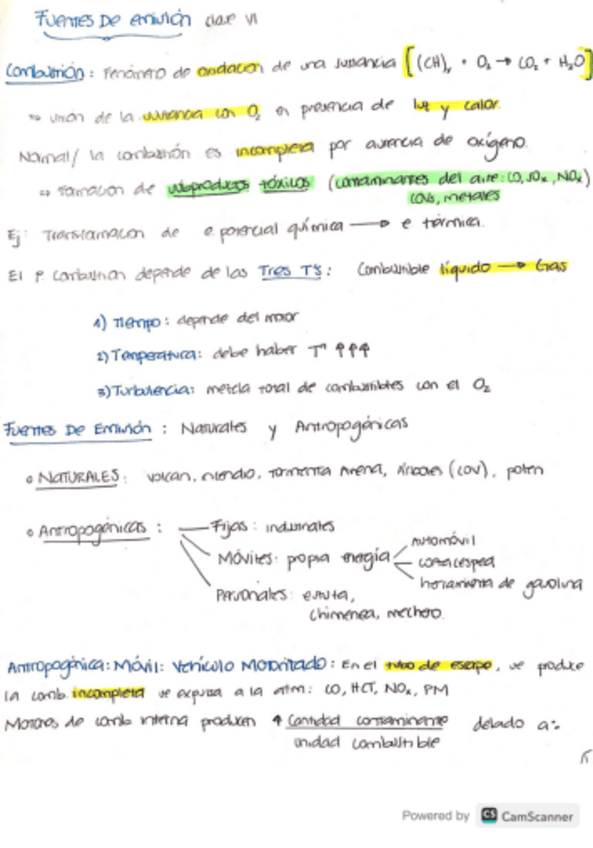 Fuentes De emisión clase VI
Combustión: Fenómeno de oxidación de una sustancia [(CH)x + O2 → CO2 + H2O]
↪ unión de la sustancia con O2 en presencia de luz y calor.
Normal/ la combustión es incompleta por ausencia de oxígeno.
⇒ Formación de subproductos tóxicos (contaminantes del aire: CO, SOx, NOx)
COVs, metales
Ej: Transformación de e potencial química → e térmica.
El P. combustión depende de las Tres T's: Combustible líquido → Gas
1) Tiempo: depende del motor
2) Temperatura: debe haber T° ↑↑↑
3) Turbulencia: mezcla total de combustibles con el O2
Fuentes De Emisión: Naturales y Antropogénicas
• NATURALES: volcan, incendio, tormenta Arena, Árboles (COV), polen
• Antropogénicas: Fijas: industriales
Móviles: propia energía
Automóvil
cortacesped
herramienta de gasolina
Personales: estufa,
chimenea, mechero.
Antropogénica: Móvil: Vehículo Motorizado: En el tubo de escape, se produce
la comb. incompleta se expulsa a la atm: CO, HCT, NOx, PM
Motores de comb interna producen ↑ Cantidad contaminante debido a:
unidad combustible
Powered by CS CamScanner